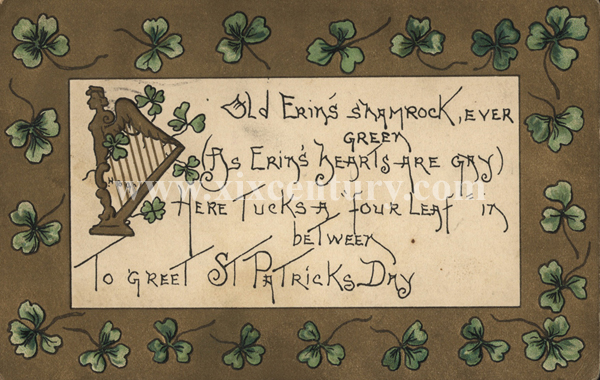 Old Erin's shamrock, ever
green
(As Erin's hearts are gay)
Here tucks a four leaf in
between
To greet St Patricks Day
www.xixcentury.com